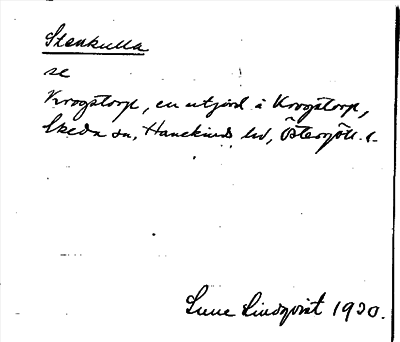 Stenkulla
se
Krogstorp, en utjord å Krogstorp,
Skeda sn, Hanekinds hd, Östergötl. l.
Sune Lindqvist 1920.